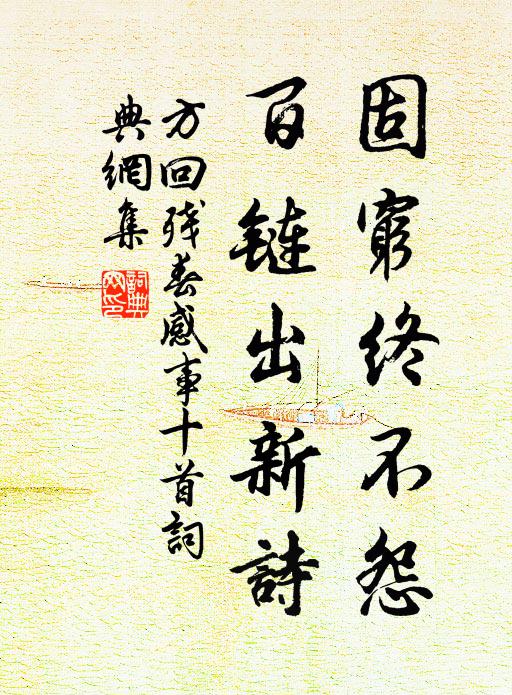 固窮終不怨
百鏈出新詩
方回残春感事十首詞
典網集
詞典
网印